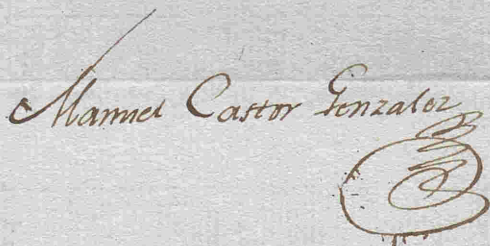 Manuel Castor Gonzalez